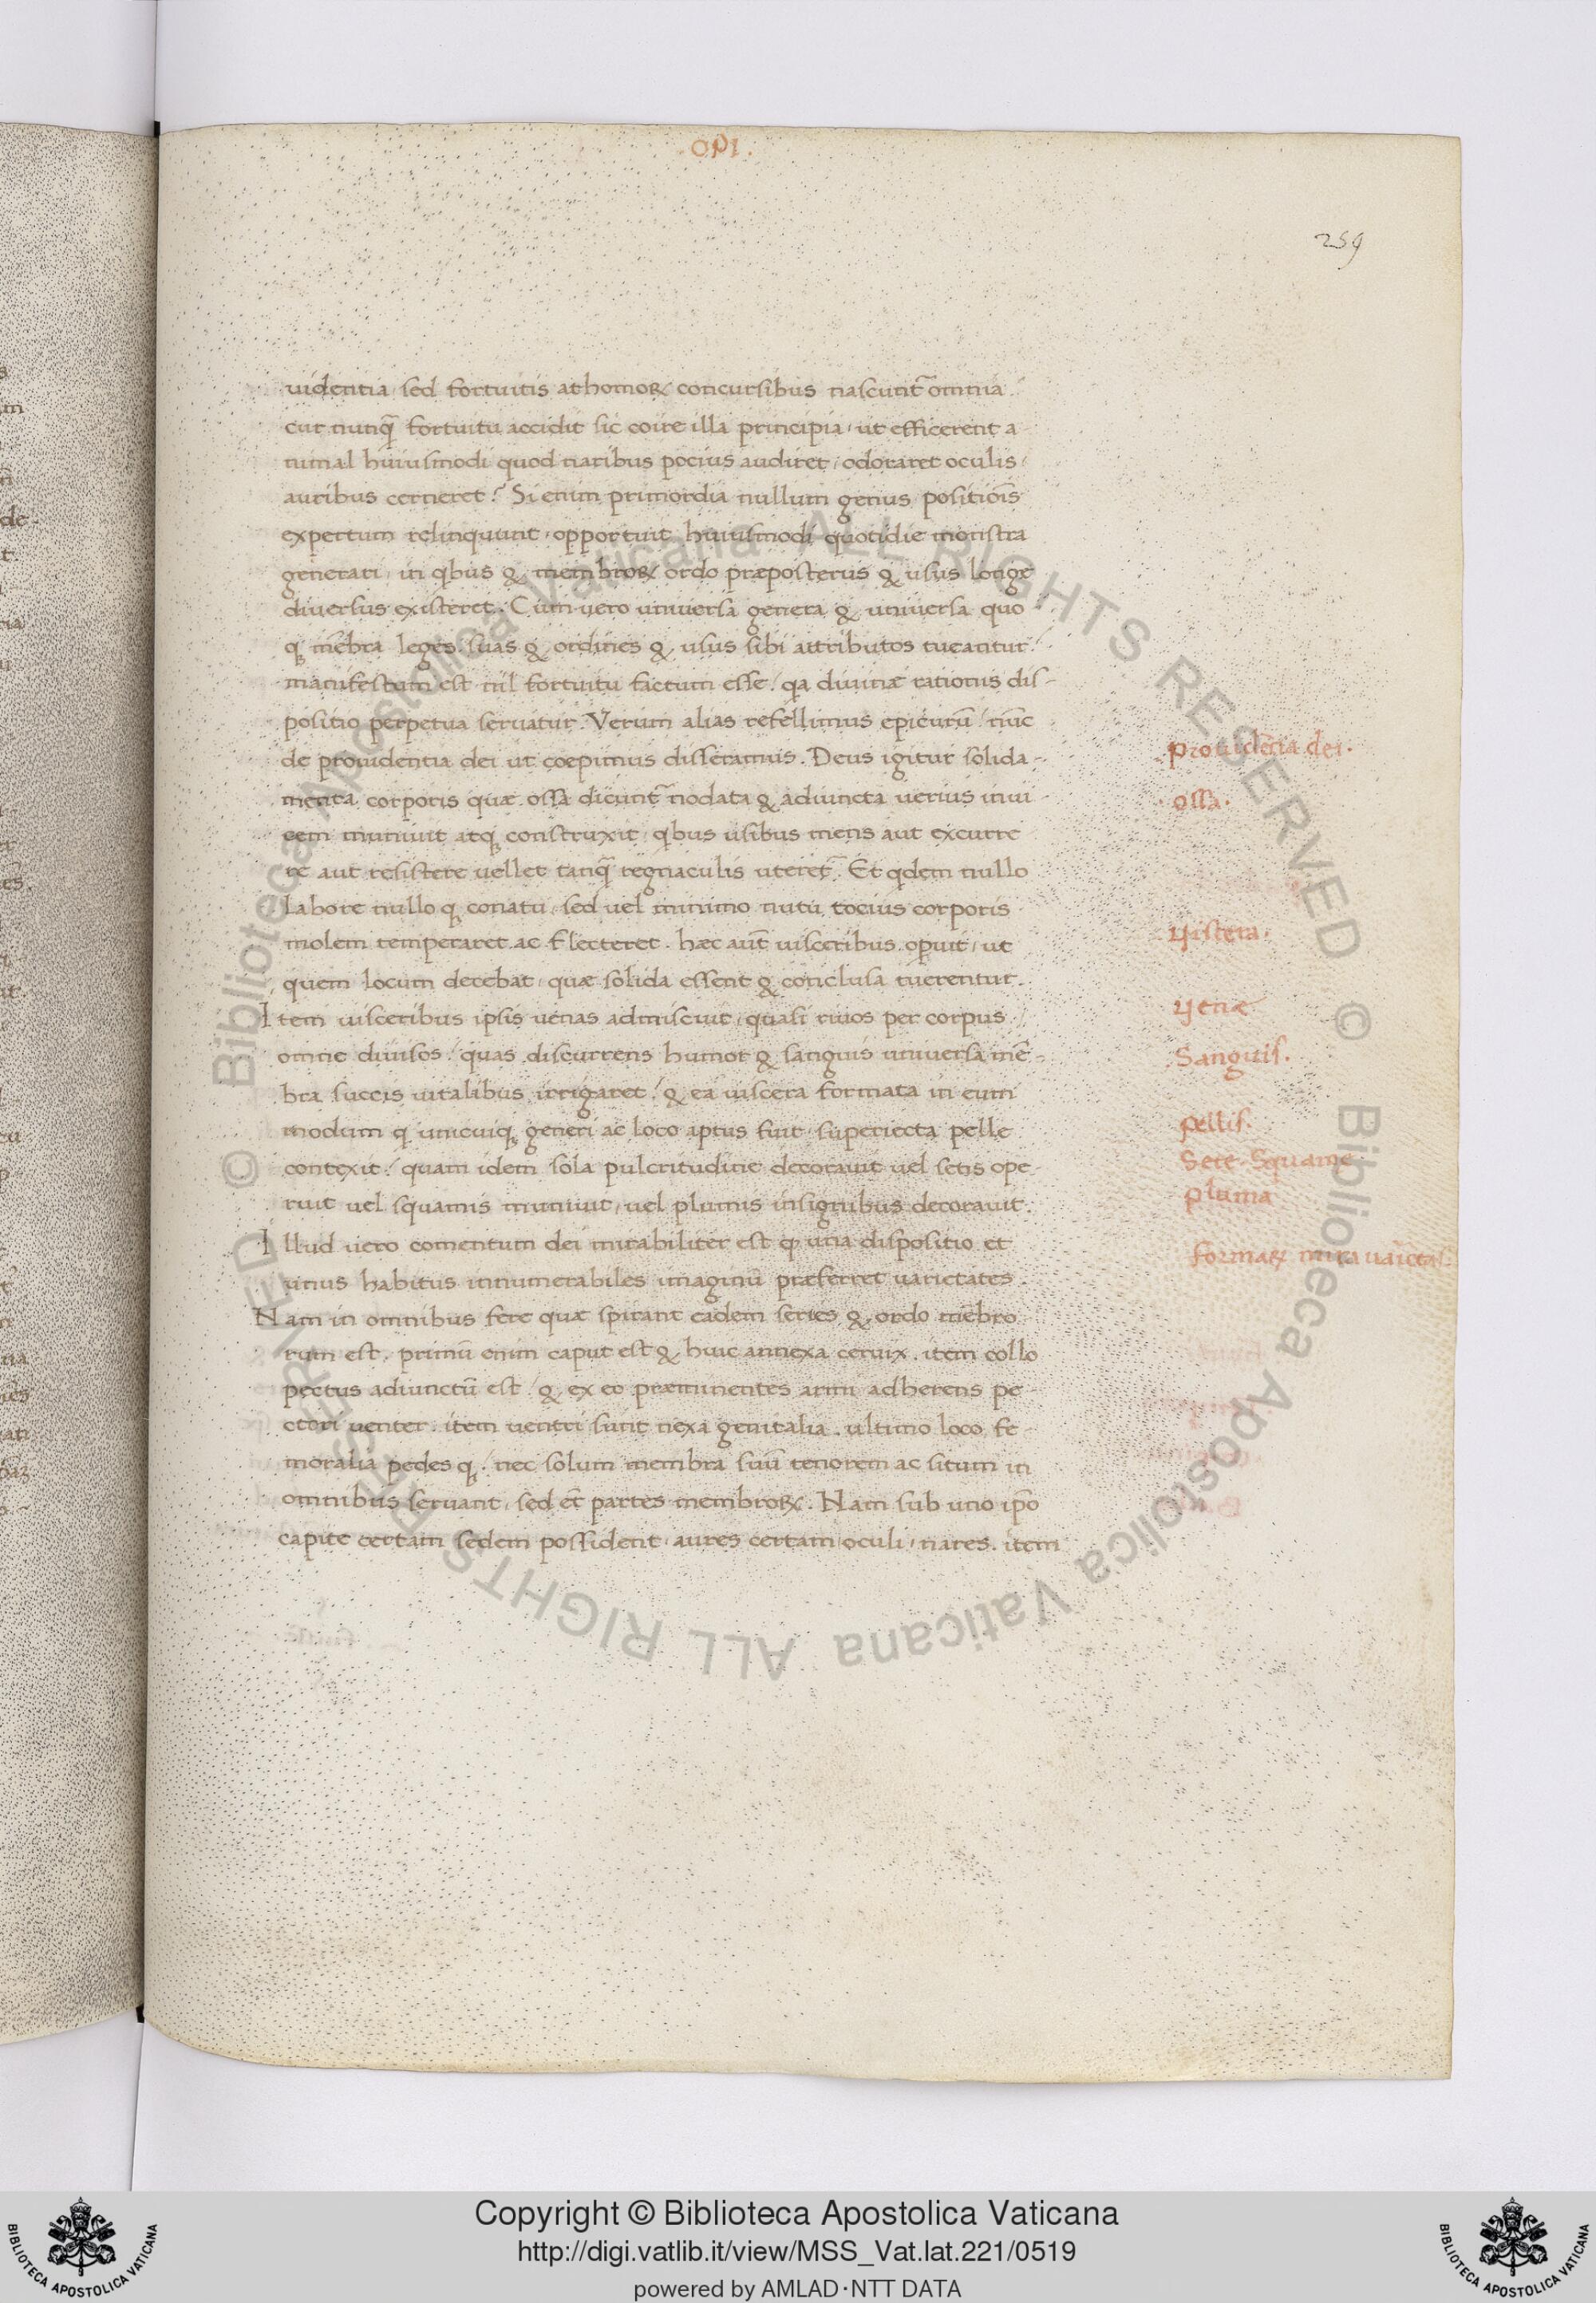 .OPI.
259
uidentia sed fortuitis athomoꝝ concursibus nascunt̃ omnia.
cur nunq̃ fortuitu accidit sic coire illa principia, ut efficerent a
nimal huiusmodi quod naribus pocius audiret, odoraret oculis,
auribus cerneret? Si enim primordia nullum genus positiõis
expertum relinquunt, opportuit huiusmodi quotidie monstra
generari, in qbus & membroꝝ ordo præposterus & usus longe
diuersus existeret. Cum uero uniuersa genera & uniuersa quo
q; mẽbra leges suas & ordines & usus sibi attributos tueantur.
manifestum est nil fortuitu factum esse, qa diuinæ rationis dis-
positio perpetua seruatur. Verum alias refellimus epicurũ, nũc
de prouidentia dei ut coepimus disseramus. Deus igitur solida-
menta corporis quæ ossa dicunt̃ nodata & adiuncta uerius inui
cem muniuit atq; construxit, qbus usibus mens aut excurre
re aut resistere uellet tanq̃ regnaculis uteret̃. Et qdem nullo
labore nullo q; conatu, sed uel minimo nutu tocius corporis
molem temperaret ac flecteret. hæc aũt uisceribus operuit, ut
quem locum decebat, quæ solida essent & conclusa tuerentur.
Item uisceribus ipsis uenas admiscuit, quasi riuos per corpus
omne diuisos, quas discurrens humor & sanguis uniuersa mẽ-
bra succis uitalibus irrigaret, & ea uiscera formata in eum
modum q unicuiq; generi ac loco aptus fuit, superiecta pelle
contexit, quam idem sola pulcritudine decorauit uel setis ope-
ruit uel squamis muniuit, uel plumis insignibus decorauit.
Illud uero comentum dei mirabiliter est q una dispositio et
unus habitus innumerabiles imaginũ præferret uarietates.
Nam in omnibus fere quæ spirant eadem series & ordo mẽbro
rum est. primũ enim caput est & huic annexa ceruix. item collo
pectus adiunctũ est, & ex eo præminentes armi adherens pe-
ctori uenter. item uentri sunt nexa genitalia. ultimo loco fe-
moralia pedes q;. nec solum membra suũ tenorem ac situm in
omnibus seruant, sed et̃ partes membroꝝ. Nam sub uno ip̃o
capite certam sedem possident, aures certam, oculi, nares. item
prouidẽtia dei.
ossa.
Viscera.
Venæ
Sanguis.
pellis.
Sete. Squame
pluma
formaꝝ mira uarietas.
© Biblioteca Apostolica Vaticana ALL RIGHTS RESERVED © Biblioteca Apostolica Vaticana ALL RIGHTS RESERVED
Copyright © Biblioteca Apostolica Vaticana
http://digi.vatlib.it/view/MSS_Vat.lat.221/0519
powered by AMLAD·NTT DATA
BIBLIOTECA APOSTOLICA VATICANA
BIBLIOTECA APOSTOLICA VATICANA